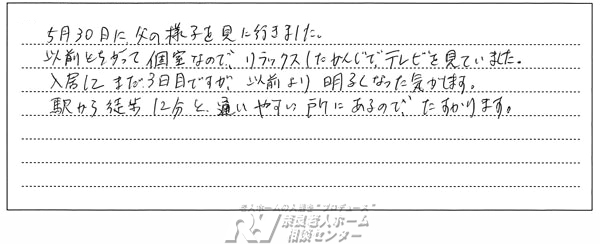 5月30日に父の様子を見に行きました。
以前とちがって個室なので、リラックスしたかんじでテレビを見ていました。
入居してまだ3日目ですが、以前より明るくなった気がします。
駅から徒歩12分と、通いやすい所にあるので、たすかります。
老人ホームの入居を"プロデュース"
奈良老人ホーム
相談センター